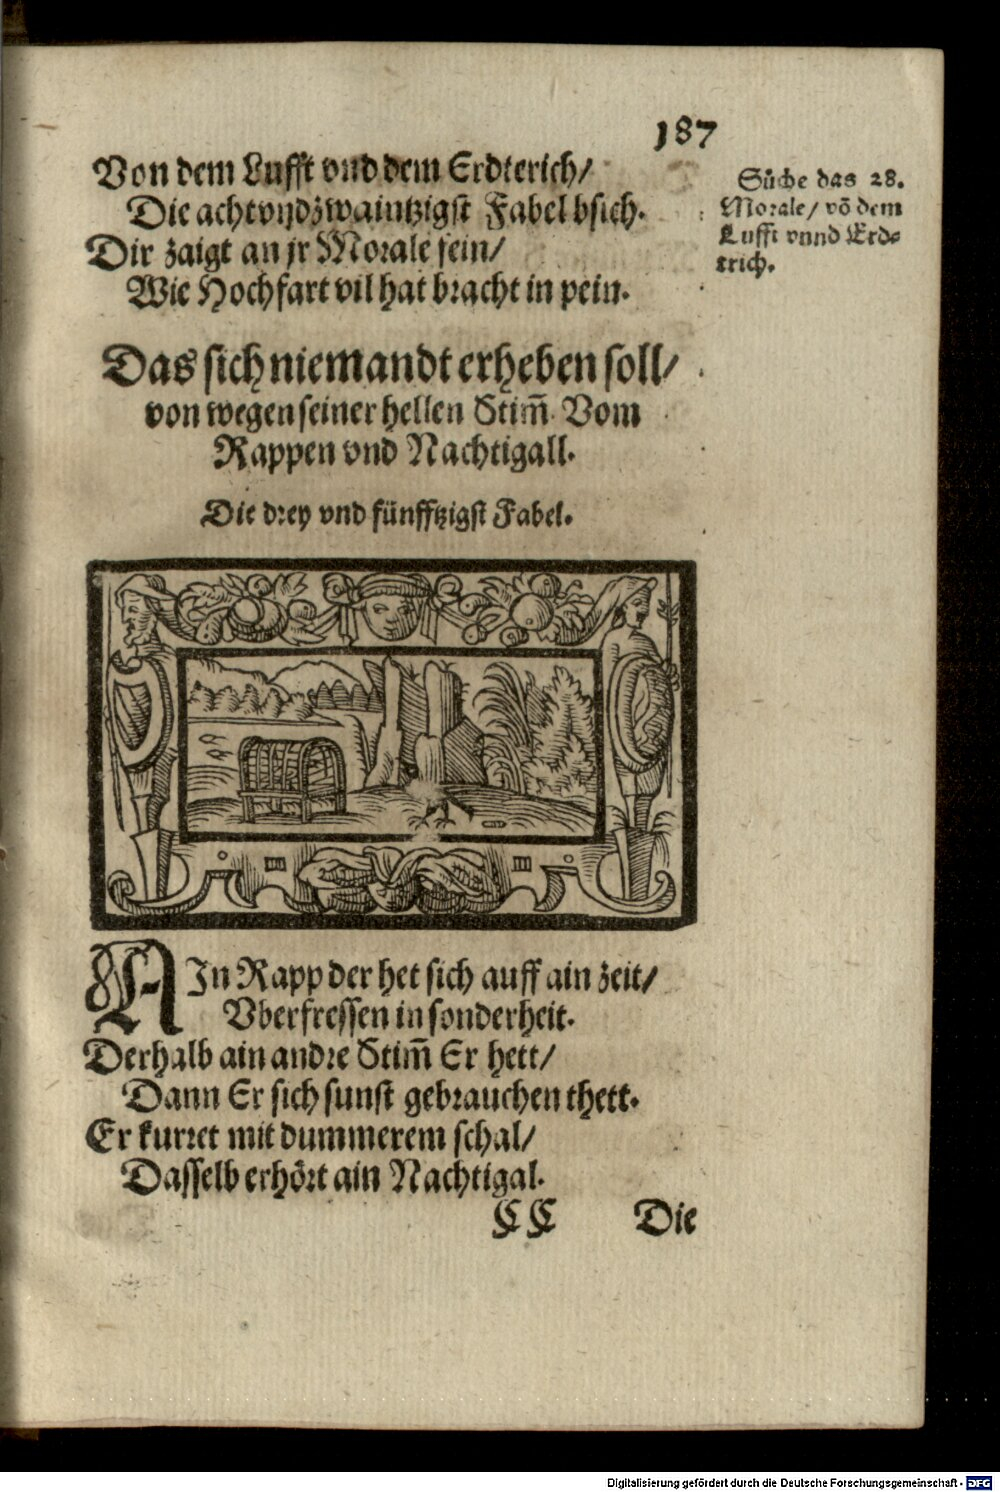 187
Von dem Lufft vnd dem Erdterich/
Die acht vndzwaintzigst Fabel bsich.
Dir zaigt an jr Morale fein/
Wie Hochfart vil hat bracht in pein.
Sůche das 28.
Morale/ võ dem
Lufft vnnd Erd-
trich.
Das sich niemandt erheben soll/
von wegen seiner hellen Stim̃. Vom
Rappen vnd Nachtigall.
Die drey vnd fünfftzigst Fabel.
AIn Rapp der het sich auff ain zeit/
Vberfressen in sonderheit.
Derhalb ain andre Stim̃ Er hett/
Dann Er sich sunst gebrauchen thett.
Er kurret mit dummerem schal/
Dasselb erhört ain Nachtigal.
CC Die
Digitalisierung gefördert durch die Deutsche Forschungsgemeinschaft - DFG